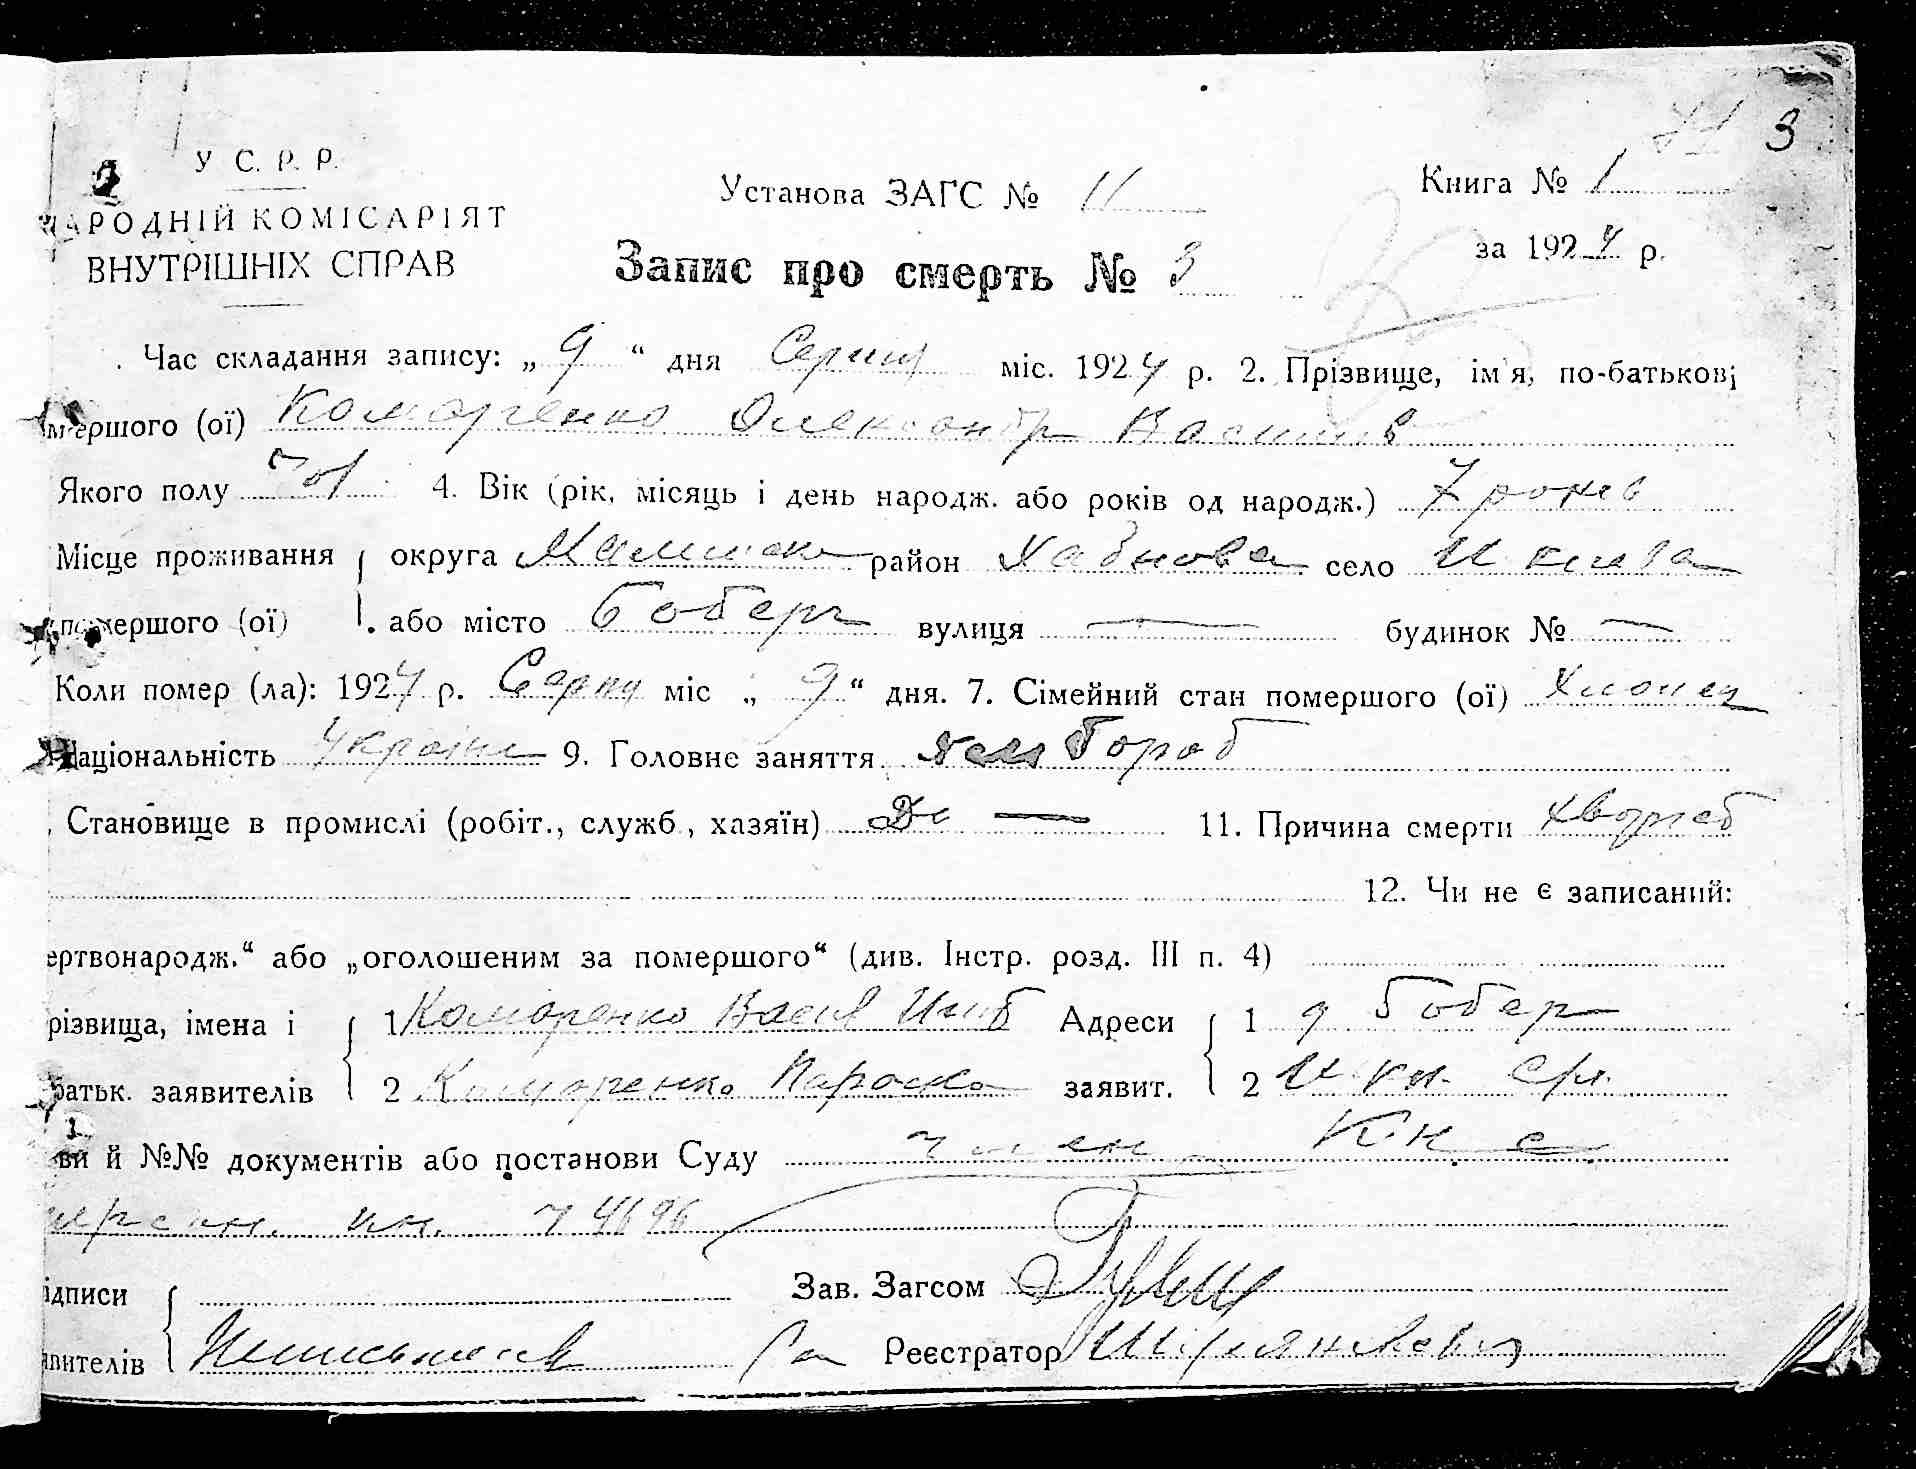 3
У С. Р. Р.
АРОДНІЙ КОМІСАРІЯТ
ВНУТРІШНІХ СПРАВ
Установа ЗАГС № 11
Книга № 1
за 1924 р.
Запис про смерть № 3
Час складання запису: „ 9 “ дня Серпня міс. 1924 р. 2. Прізвище, ім'я, по-батькові
мершого (ої) Комаренко Олександр Василів
Якого полу чол 4. Вік (рік, місяць і день народж. або років од народж.) 7 років
Місце проживання округа район Хабнова село
помершого (ої) або місто Бобер вулиця — будинок № —
Коли помер (ла): 1924 р. Серпня міс „ 9 “ дня. 7. Сімейний стан помершого (ої) Хлопец
Національність Україн 9. Головне заняття хлібороб
Становище в промислі (робіт., служб., хазяїн) — 11. Причина смерти
12. Чи не є записаний:
ертвонародж.“ або „оголошеним за помершого“ (див. Інстр. розд. III п. 4)
різвища, імена і 1 Комаренко Васил Адреси 1 Бобер
батьк. заявителів 2 Комаренко Параска заявит. 2
ви й №№ документів або постанови Суду член К.Н.С.
ідписи Зав. Загсом
явителів Реєстратор